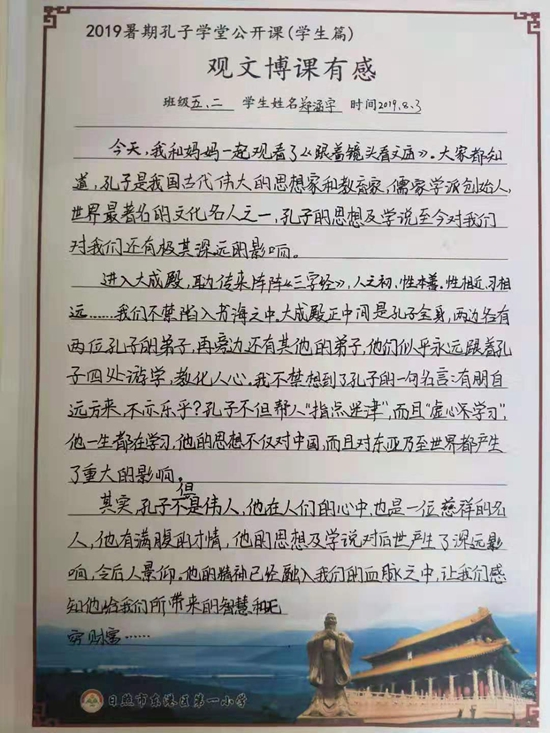 2019暑期孔子学堂公开课(学生篇)
观文博课有感
班级五、二 学生姓名郑涵宇 时间2019.8.3
今天,我和妈妈一起观看了《跟着镜头看文庙》。大家都知
道,孔子是我国古代伟大的思想家和教育家,儒家学派创始人,
世界最著名的文化名人之一,孔子的思想及学说至今对我们
对我们还有极其深远的影响。
进入大成殿,耳边传来阵阵《三字经》,人之初,性本善。性相近,习相
远……我们不禁陷入书海之中。大成殿正中间是孔子金身,两边各有
两位孔子的弟子,再旁边还有其他的弟子,他们似乎永远跟着孔
子四处游学,教化人心。我不禁想到了孔子的一句名言:有朋自
远方来,不亦乐乎?孔子不但帮人"指点迷津",而且"虚心学习",
他一生都在学习,他的思想不仅对中国,而且对东亚乃至世界都产生
了重大的影响。
其实,孔子不但是伟人,他在人们的心中,也是一位慈祥的名
人,他有满腹的才情,他的思想及学说对后世产生了深远影
响,令后人景仰。他的精神已经融入我们的血脉之中,让我们感
知他给我们所带来的智慧和无
穷财富……
日照市东港区第一小学